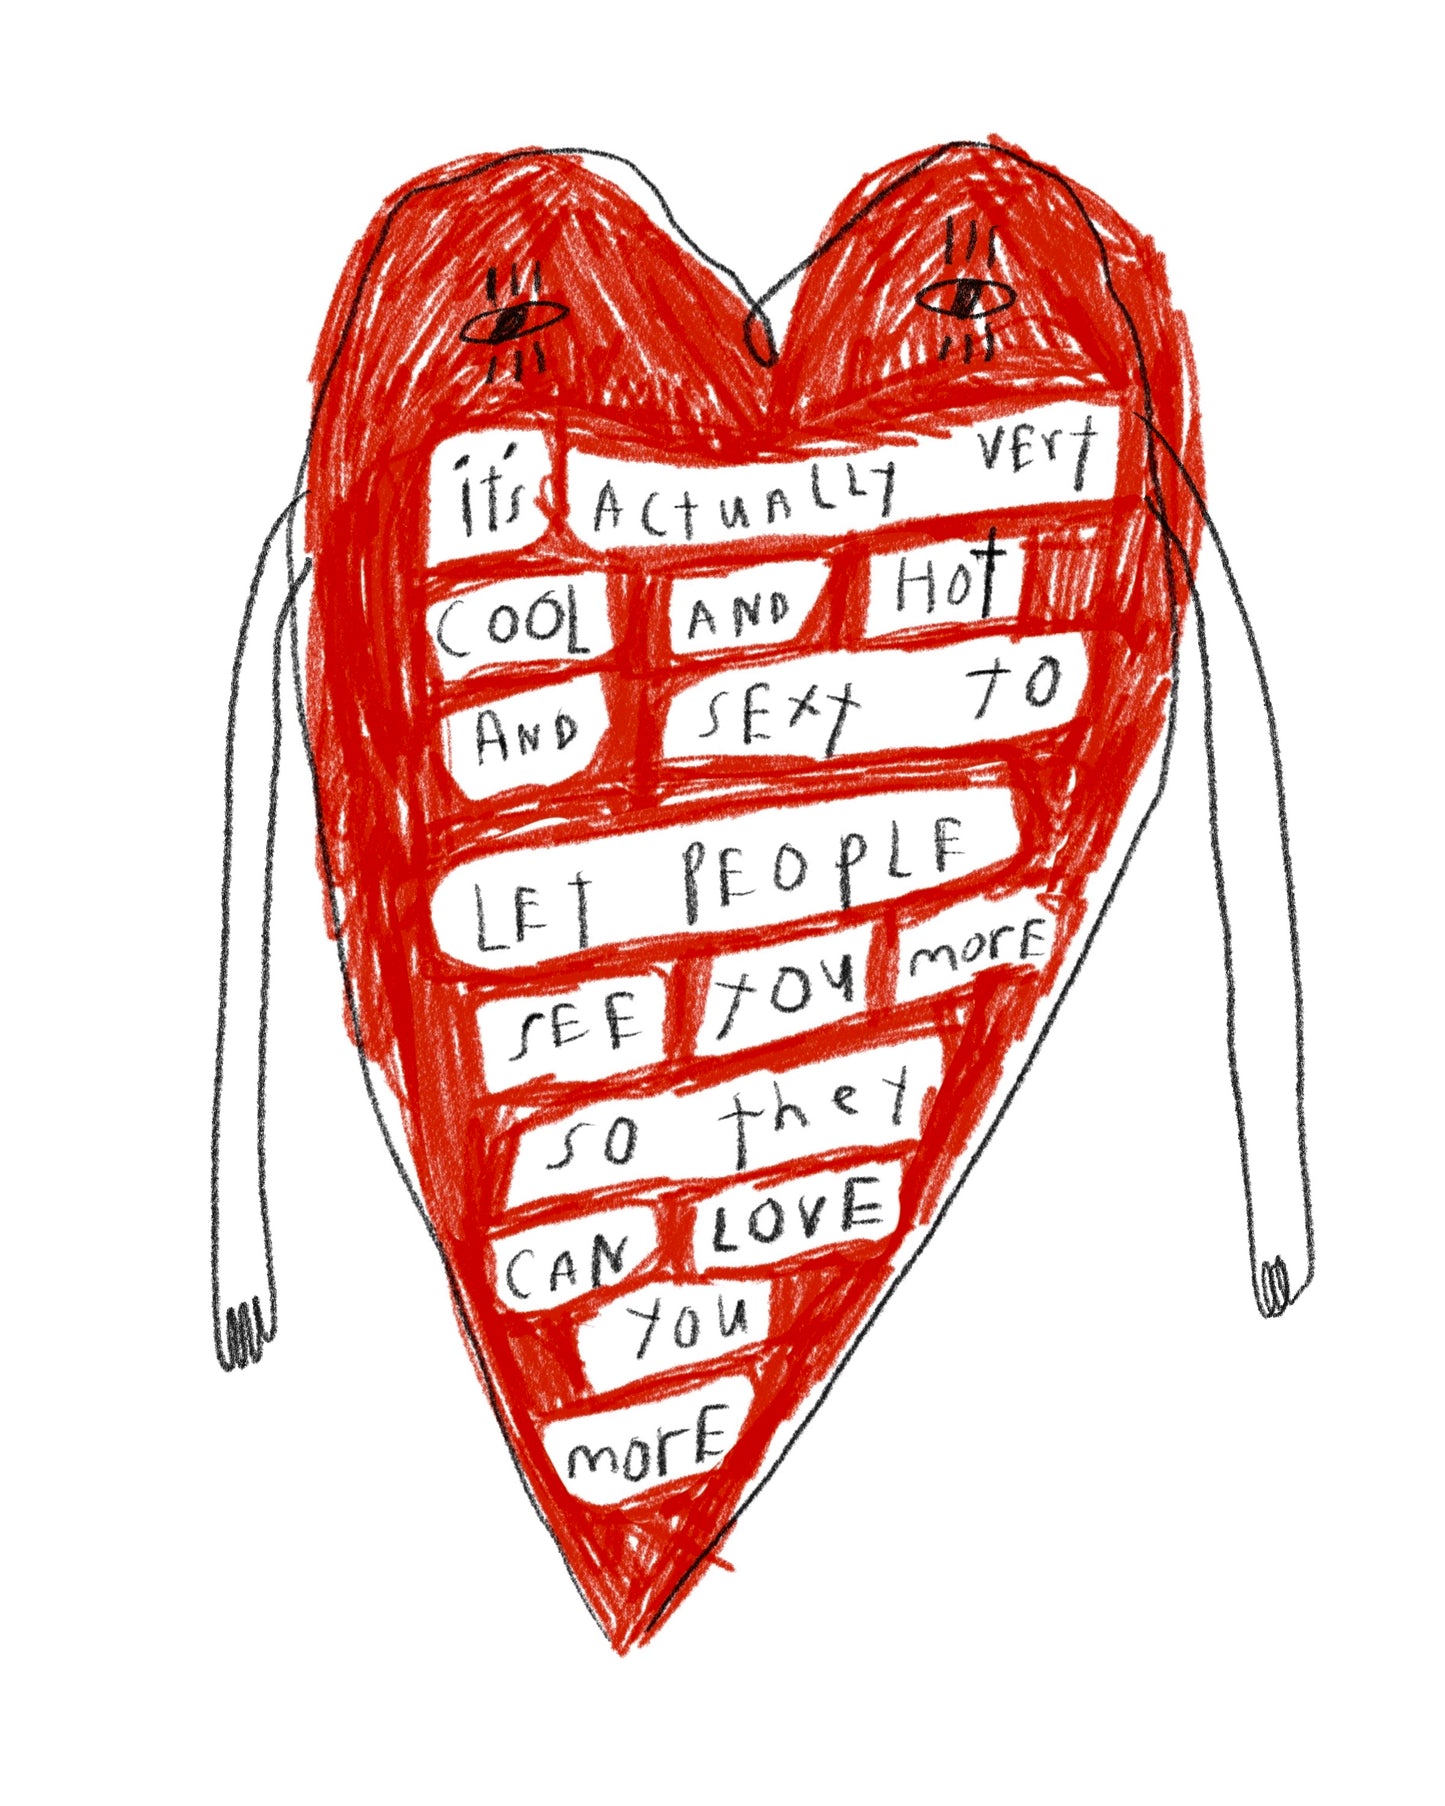 it's ACtuALLY VErY
COOL AND HOt
AND SEXY TO
LEt PEOPLE
SEE YOU morE
SO they
CAN LOVE
YOu
morE